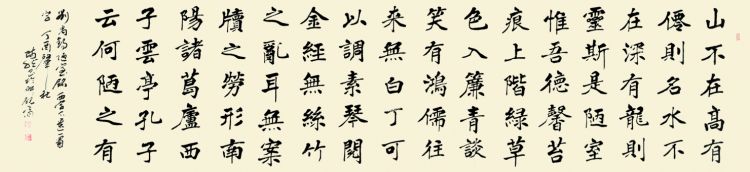 山不在高有
僊則名水不
在深有龍則
靈斯是陋室
惟吾德馨苔
痕上階綠草
色入簾青談
笑有鴻儒往
来無白丁可
以調素琴閱
金經無絲竹
之亂耳無案
牘之勞形南
陽諸葛廬西
子雲亭孔子
云何陋之有
劉禹錫陋室銘